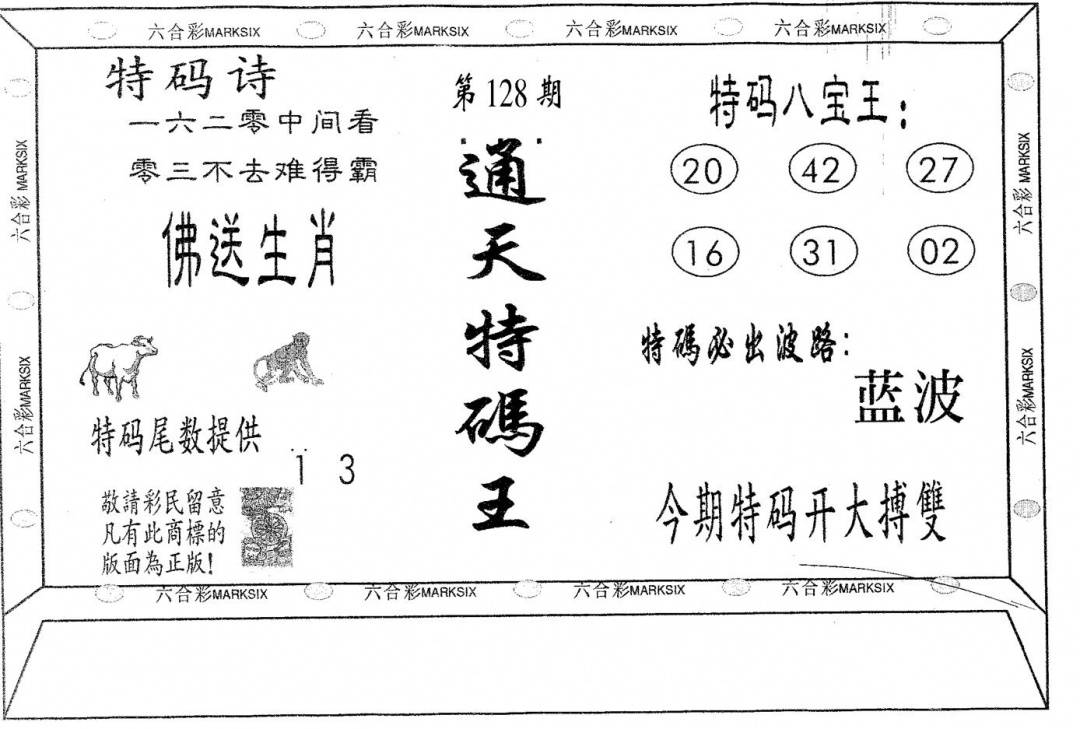 六合彩MARKSIX 六合彩MARKSIX 六合彩MARKSIX 六合彩MARKSIX
六合彩 MARKSIX
六合彩MARKSIX
特码诗
一六二零中间看
零三不去难得霸
佛送生肖
特码尾数提供
1 3
敬請彩民留意
凡有此商標的
版面為正版!
第128期
通天特碼王
特码八宝王:
20 42 27
16 31 02
特碼必出波路:
蓝波
今期特码开大搏雙
六合彩 MARKSIX
六合彩MARKSIX
六合彩MARKSIX 六合彩MARKSIX 六合彩MARKSIX 六合彩MARKSIX